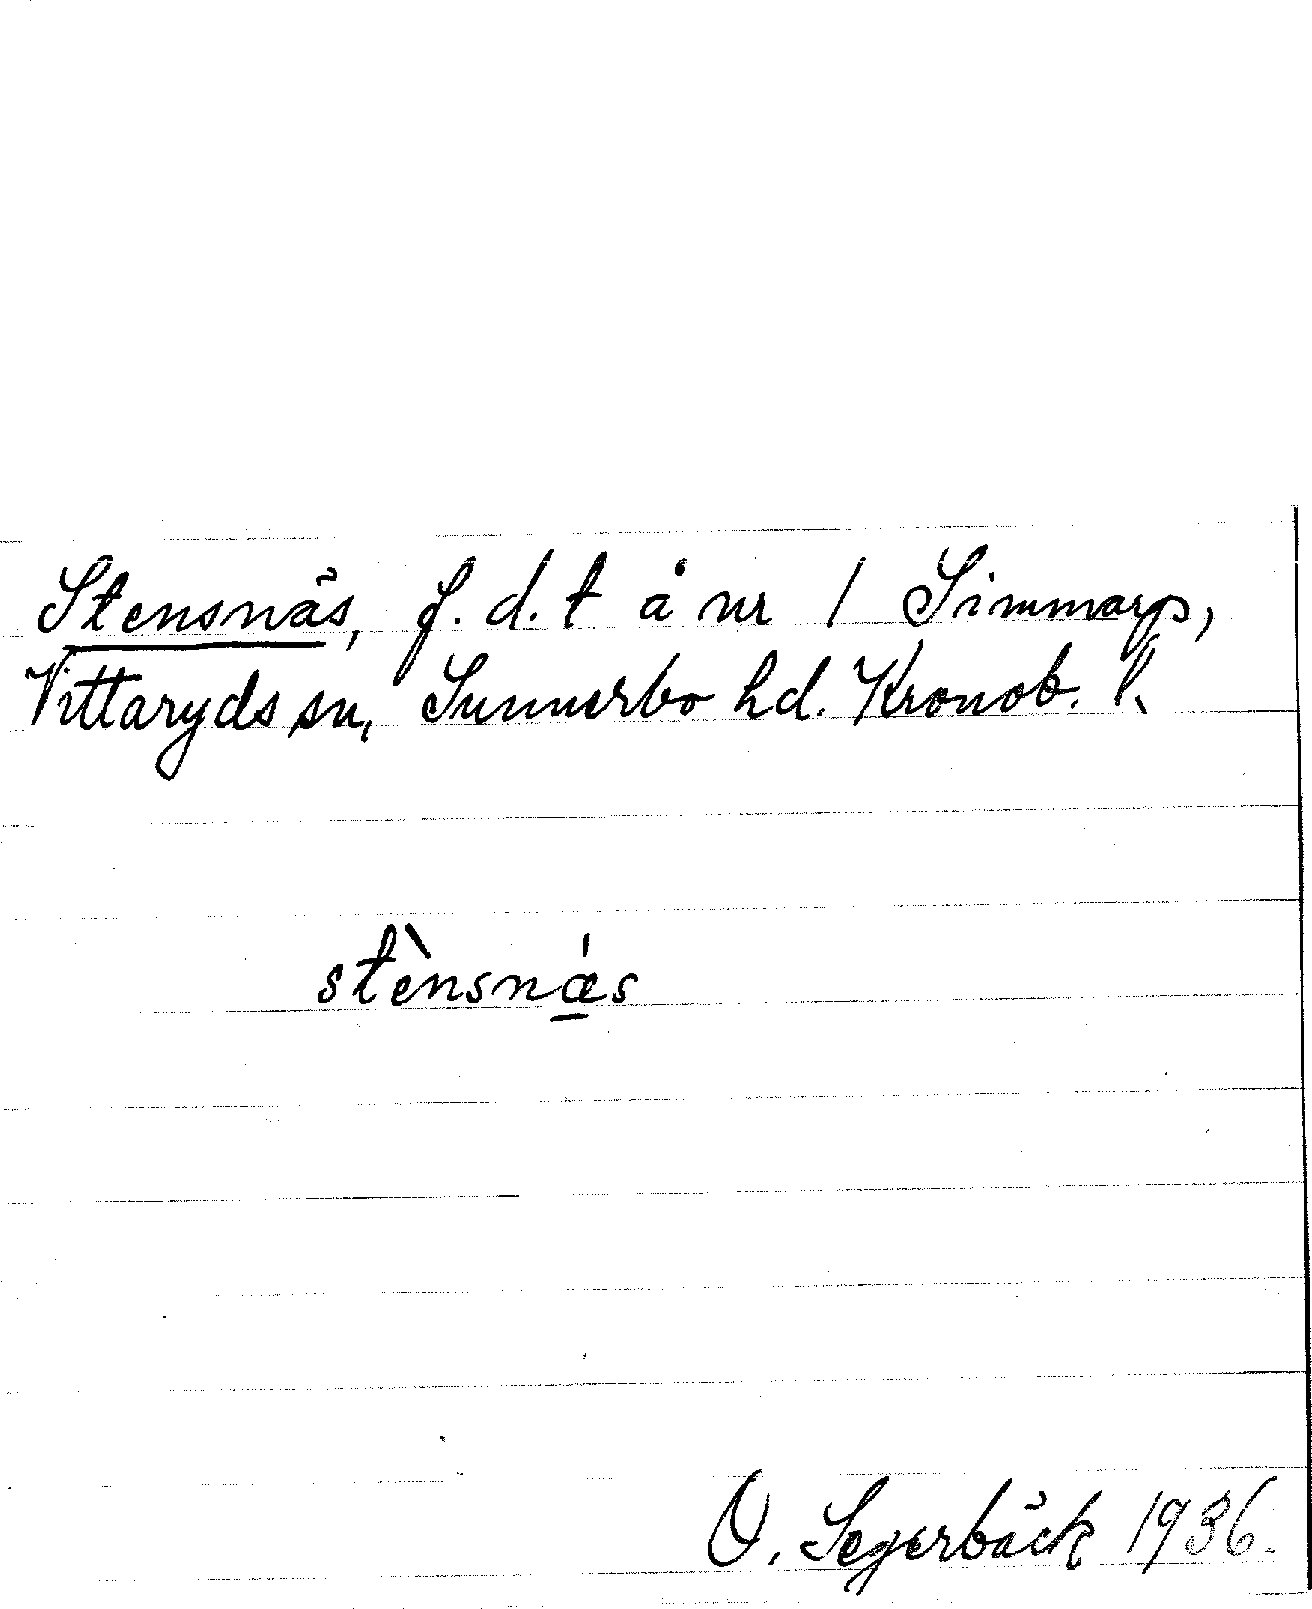 Stensnäs, f. d. t å nr 1 Simmarp,
Vittaryds sn, Sunnerbo hd. Kronob. l.
stènsnǽs
O. Segerbäck 1936.